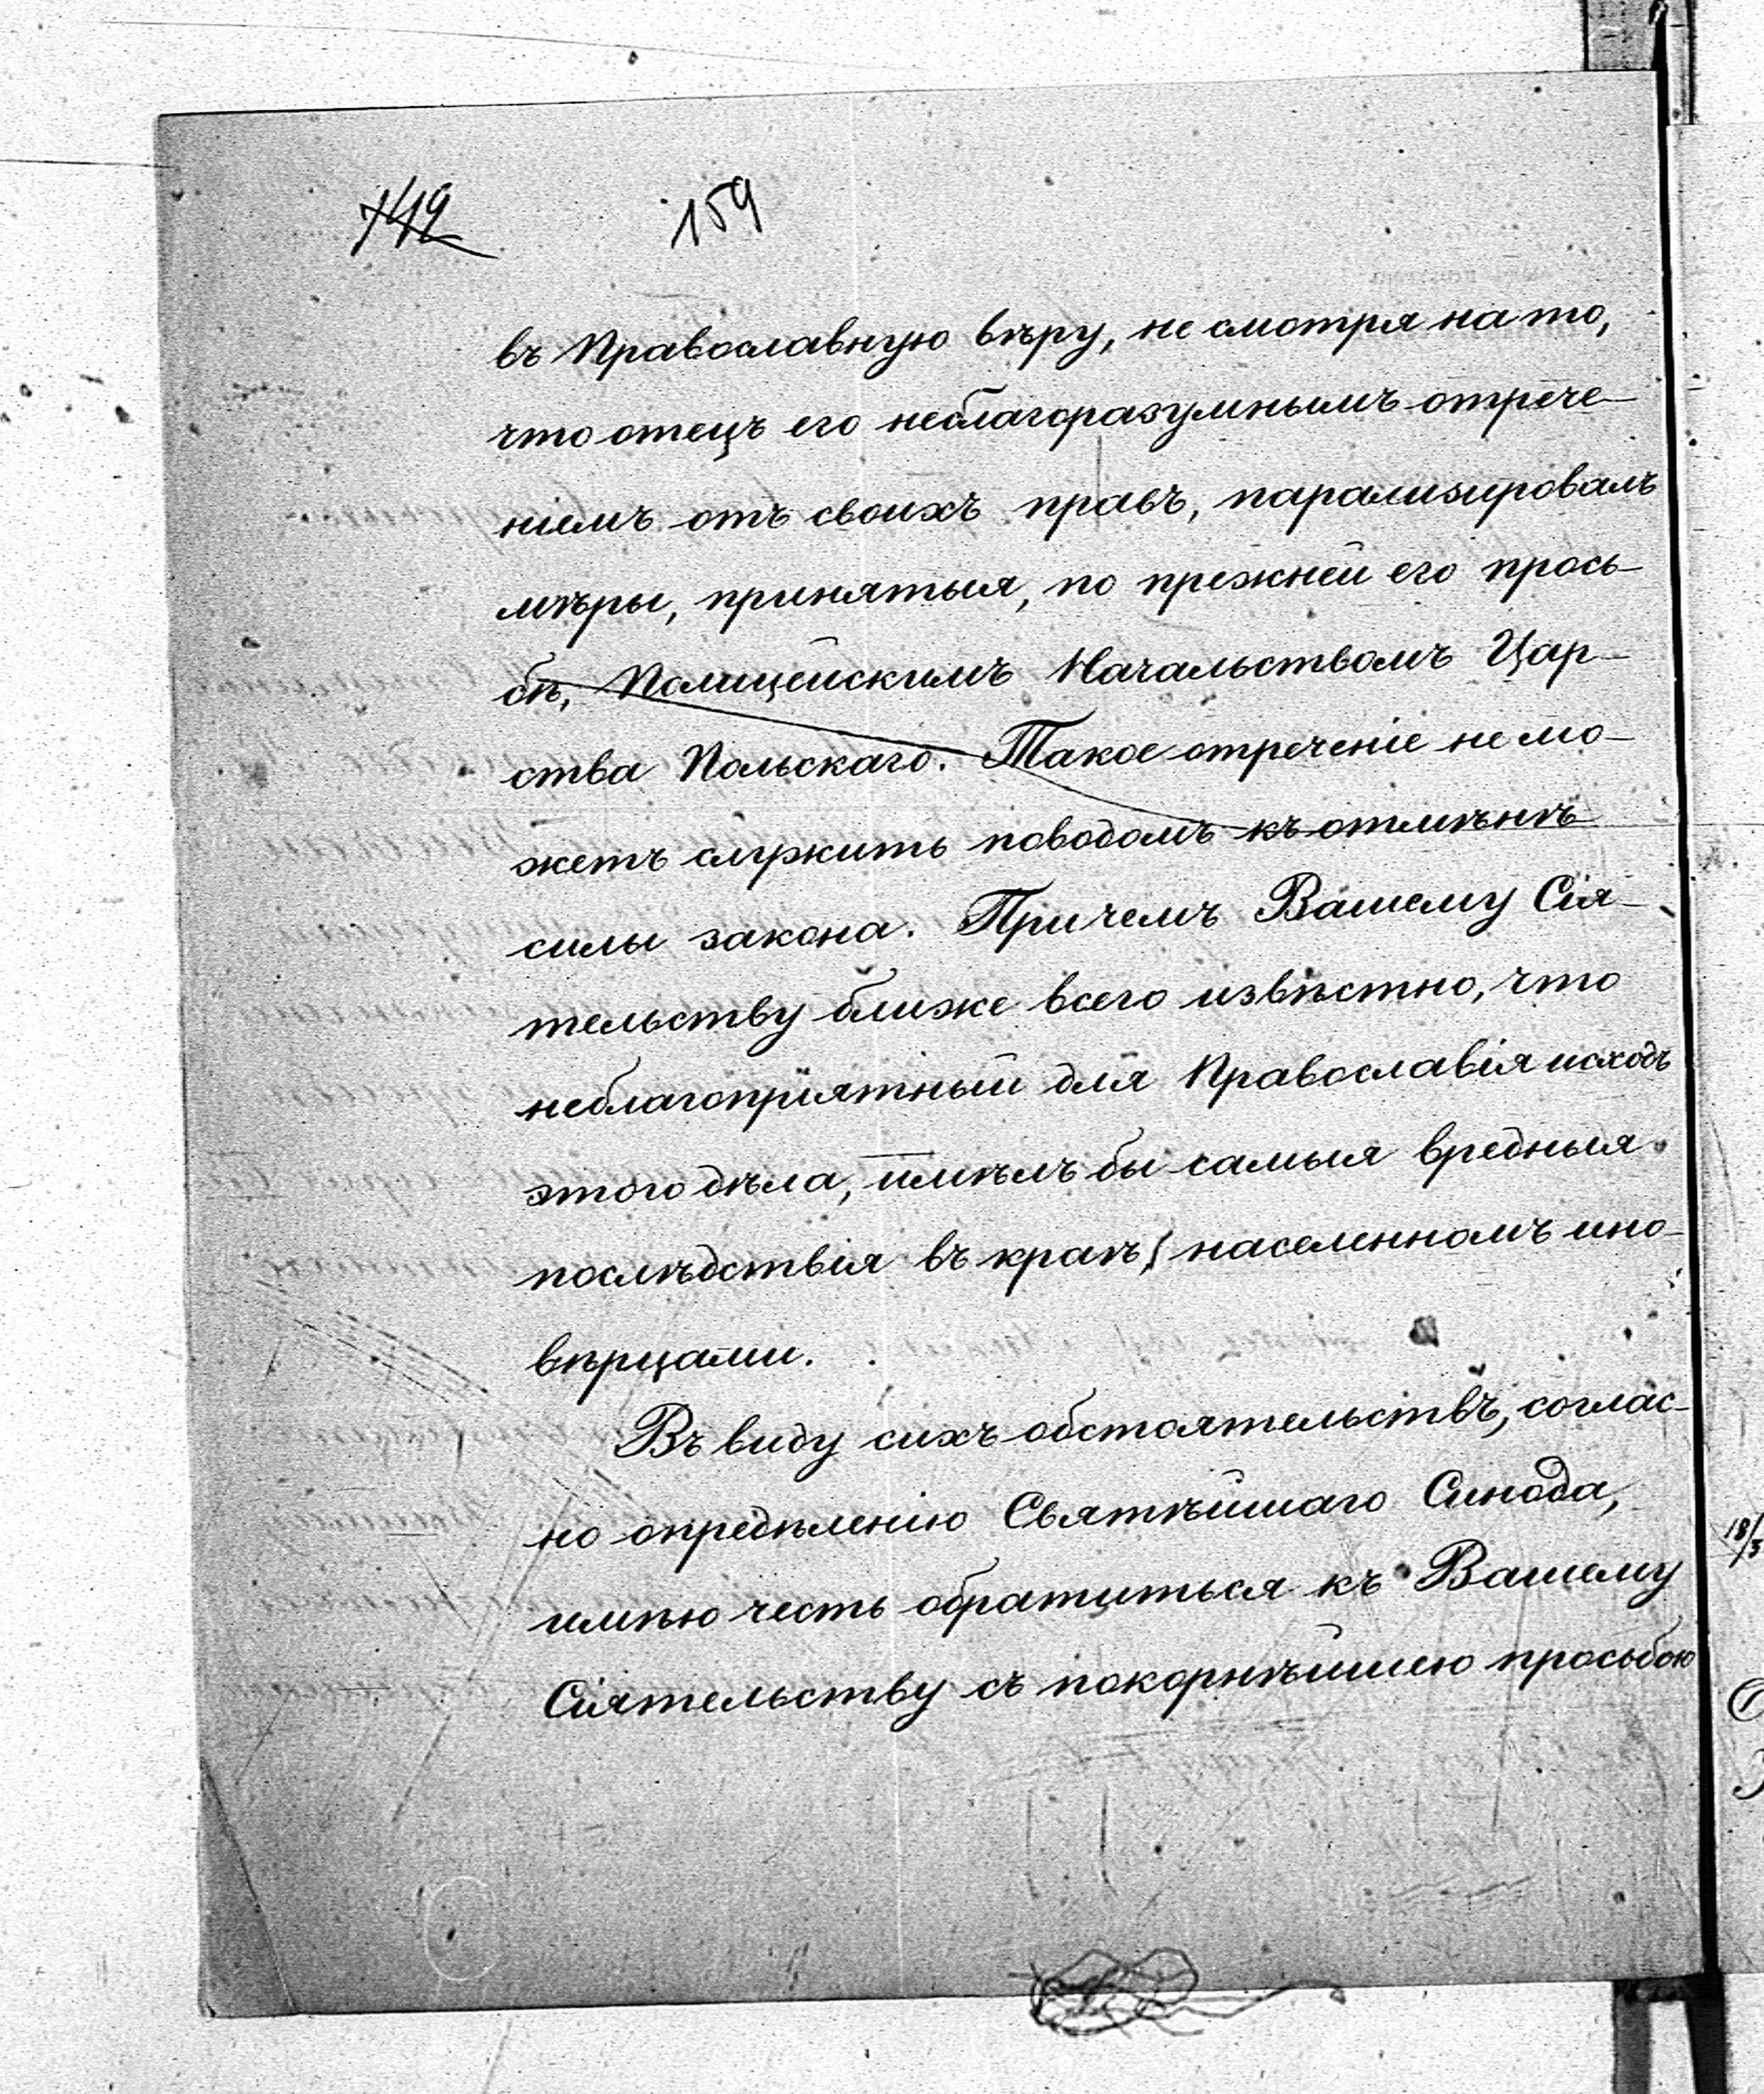 142 159
въ Православную вѣру, не смотря на то,
что отецъ его неблагоразумнымъ отрече-
ніемъ отъ своихъ правъ, парализировалъ
мѣры, принятыя, по прежней его прось-
бѣ, Полицейскимъ Начальствомъ Цар-
ства Польскаго. Такое отреченіе не мо-
жетъ служить поводомъ къ отмѣнѣ
силы закона. Причемъ Вашему Сія-
тельству ближе всего извѣстно, что
неблагопріятный для Православія исходъ
этого дѣла, имѣлъ бы самыя вредныя
послѣдствія въ краѣ, населенномъ ино-
вѣрцами.
Въ виду сихъ обстоятельствъ, соглас-
но опредѣленію Святѣйшаго Синода,
имѣю честь обратиться къ Вашему
Сіятельству съ покорнѣйшею просьбою